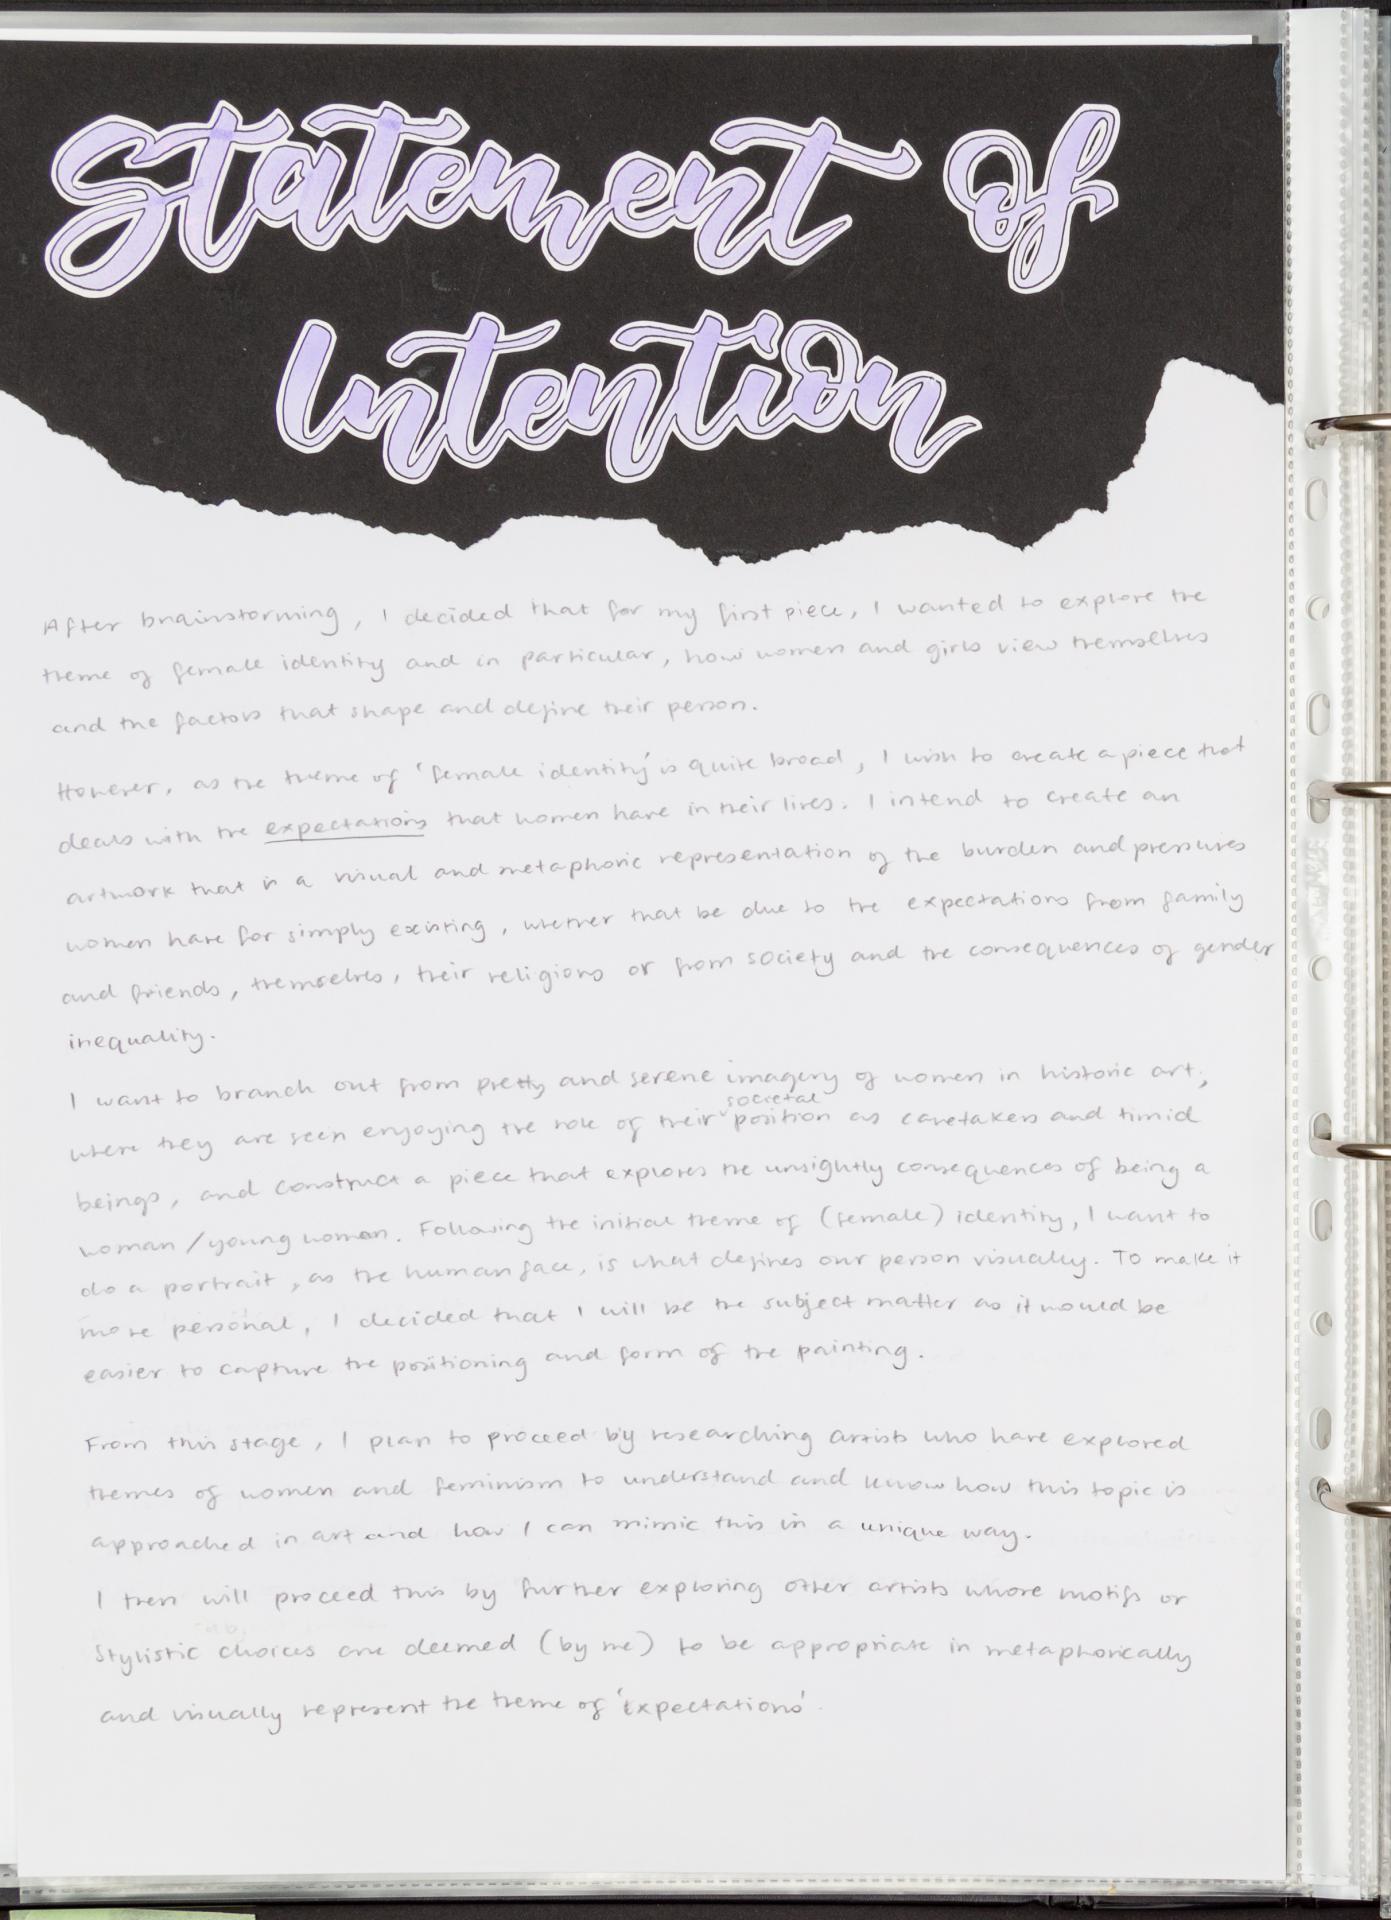 Statement of
Intention
After brainstorming, I decided that for my first piece, I wanted to explore the
theme of female identity and in particular, how women and girls view themselves
and the factors that shape and define their person.
However, as the theme of 'female identity' is quite broad, I wish to create a piece that
deals with the expectations that women have in their lives. I intend to create an
artwork that is a visual and metaphoric representation of the burden and pressures
women have for simply existing, whether that be due to the expectations from family
and friends, themselves, their religions or from society and the consequences of gender
inequality.
I want to branch out from pretty and serene imagery of women in historic art,
where they are seen enjoying the role of their societal position as caretakers and timid
beings, and construct a piece that explores the unsightly consequences of being a
woman / young woman. Following the initial theme of (female) identity, I want to
do a portrait, as the human face, is what defines our person visually. To make it
more personal, I decided that I will be the subject matter as it would be
easier to capture the positioning and form of the painting.
From this stage, I plan to proceed by researching artists who have explored
themes of women and feminism to understand and know how this topic is
approached in art and how I can mimic this in a unique way.
I then will proceed this by further exploring other artists whose motifs or
stylistic choices are deemed (by me) to be appropriate in metaphorically
and visually represent the theme of 'Expectations'.